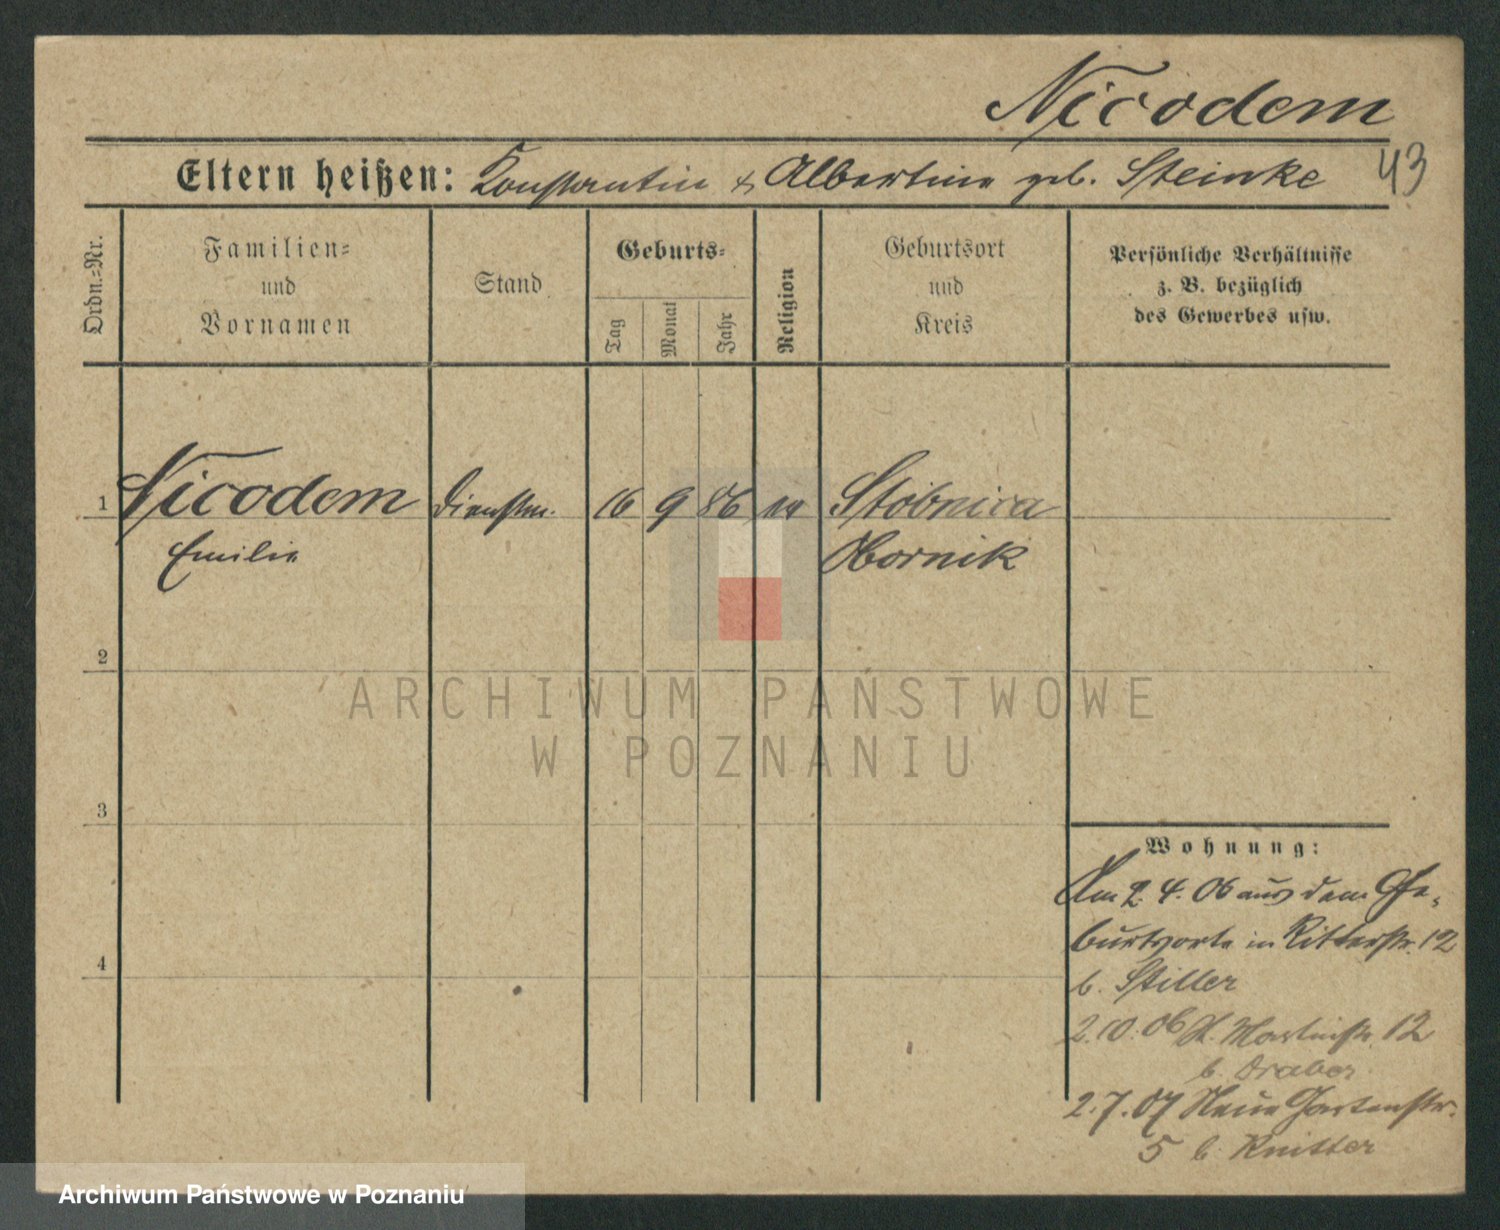 Nicodem
43
Eltern heißen: Konstantin & Albertine geb. Steinke
Ordn.-Nr.
Familien-
und
Vornamen
Stand
Geburts-
Tag
Monat
Jahr
Religion
Geburtsort
und
Kreis
Persönliche Verhältnisse
z. B. bezüglich
des Gewerbes usw.
1 Nicodem Dienstm. 16 9 86 ev Stobnica
Emilie Obornik
2
3
4
Wohnung:
Am 2.4.06 aus dem Ge-
burtsorte in Ritterstr. 12
b. Stiller
2.10.06 St. Martinstr. 12
b. Draber
2.7.07 Neue Gartenstr.
5 b. Knitter
ARCHIWUM PAŃSTWOWE
W POZNANIU
Archiwum Państwowe w Poznaniu